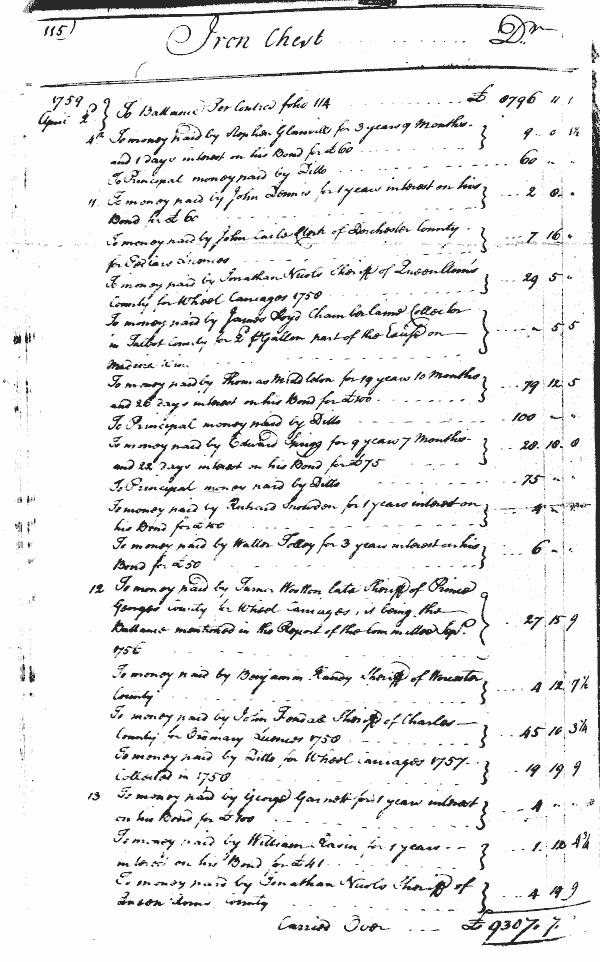 115)
Iron Chest Dr
1759
April 2d To Ballance Per Contra folio 114 £ 8796 11 1
4th To money paid by Stephen Glanvill for 3 years 9 Months
and 1 days interest on his Bond for £60 9 0 1½
To Principal money paid by Ditto 60 " "
11 To money paid by John Dennis for 1 years interest on his
Bond for £60 2 8 "
To money paid by John Earle Clerk of Dorchester County
for Pedlars Licences 7 16 "
To money paid by Jonathan Nicols Sheriff of Queen Anns
County for Wheel Carriages 1758 29 5 "
To money paid by James Loyd Chamberlaine Collector
in Talbot County for 2d P Gallon part of the Excise on
Madeira Wine " 5 5
To money paid by Thomas Middleton for 19 years 10 Months
and 26 days interest on his Bond for £100 79 12 5
To Principal money paid by Ditto 100 " "
To money paid by Edward Sprigg for 9 years 7 Months
and 22 days interest on his Bond for £75 28 18 8
To Principal money paid by Ditto 75 " "
To money paid by Richard Snowden for 1 years interest on
his Bond for £100 4 " "
To money paid by Walter Tolley for 3 years interest on his
Bond for £50 6 " "
12 To money paid by Turnor Wootton late Sheriff of Prince
Georges County for Wheel Carriages, it being the
Ballance mentioned in the Report of the Committee Sepr.
1756 27 15 9
To money paid by Benjamin Handy Sheriff of Worcester
County 4 12 7½
To money paid by John Fendall Sheriff of Charles
County for Ordinary Licences 1758 45 16 3¼
To money paid by Ditto for Wheel Carriages 1757
Collected in 1758 19 19 9
13 To money paid by George Garnett for 1 years interest
on his Bond for £100 4 " "
To money paid by William Rasin for 1 years
interest on his Bond for £41 1 12 9¾
To money paid by Jonathan Nicols Sheriff of
Queen Anns County 4 19 9
Carried Over £ 9307. 7.